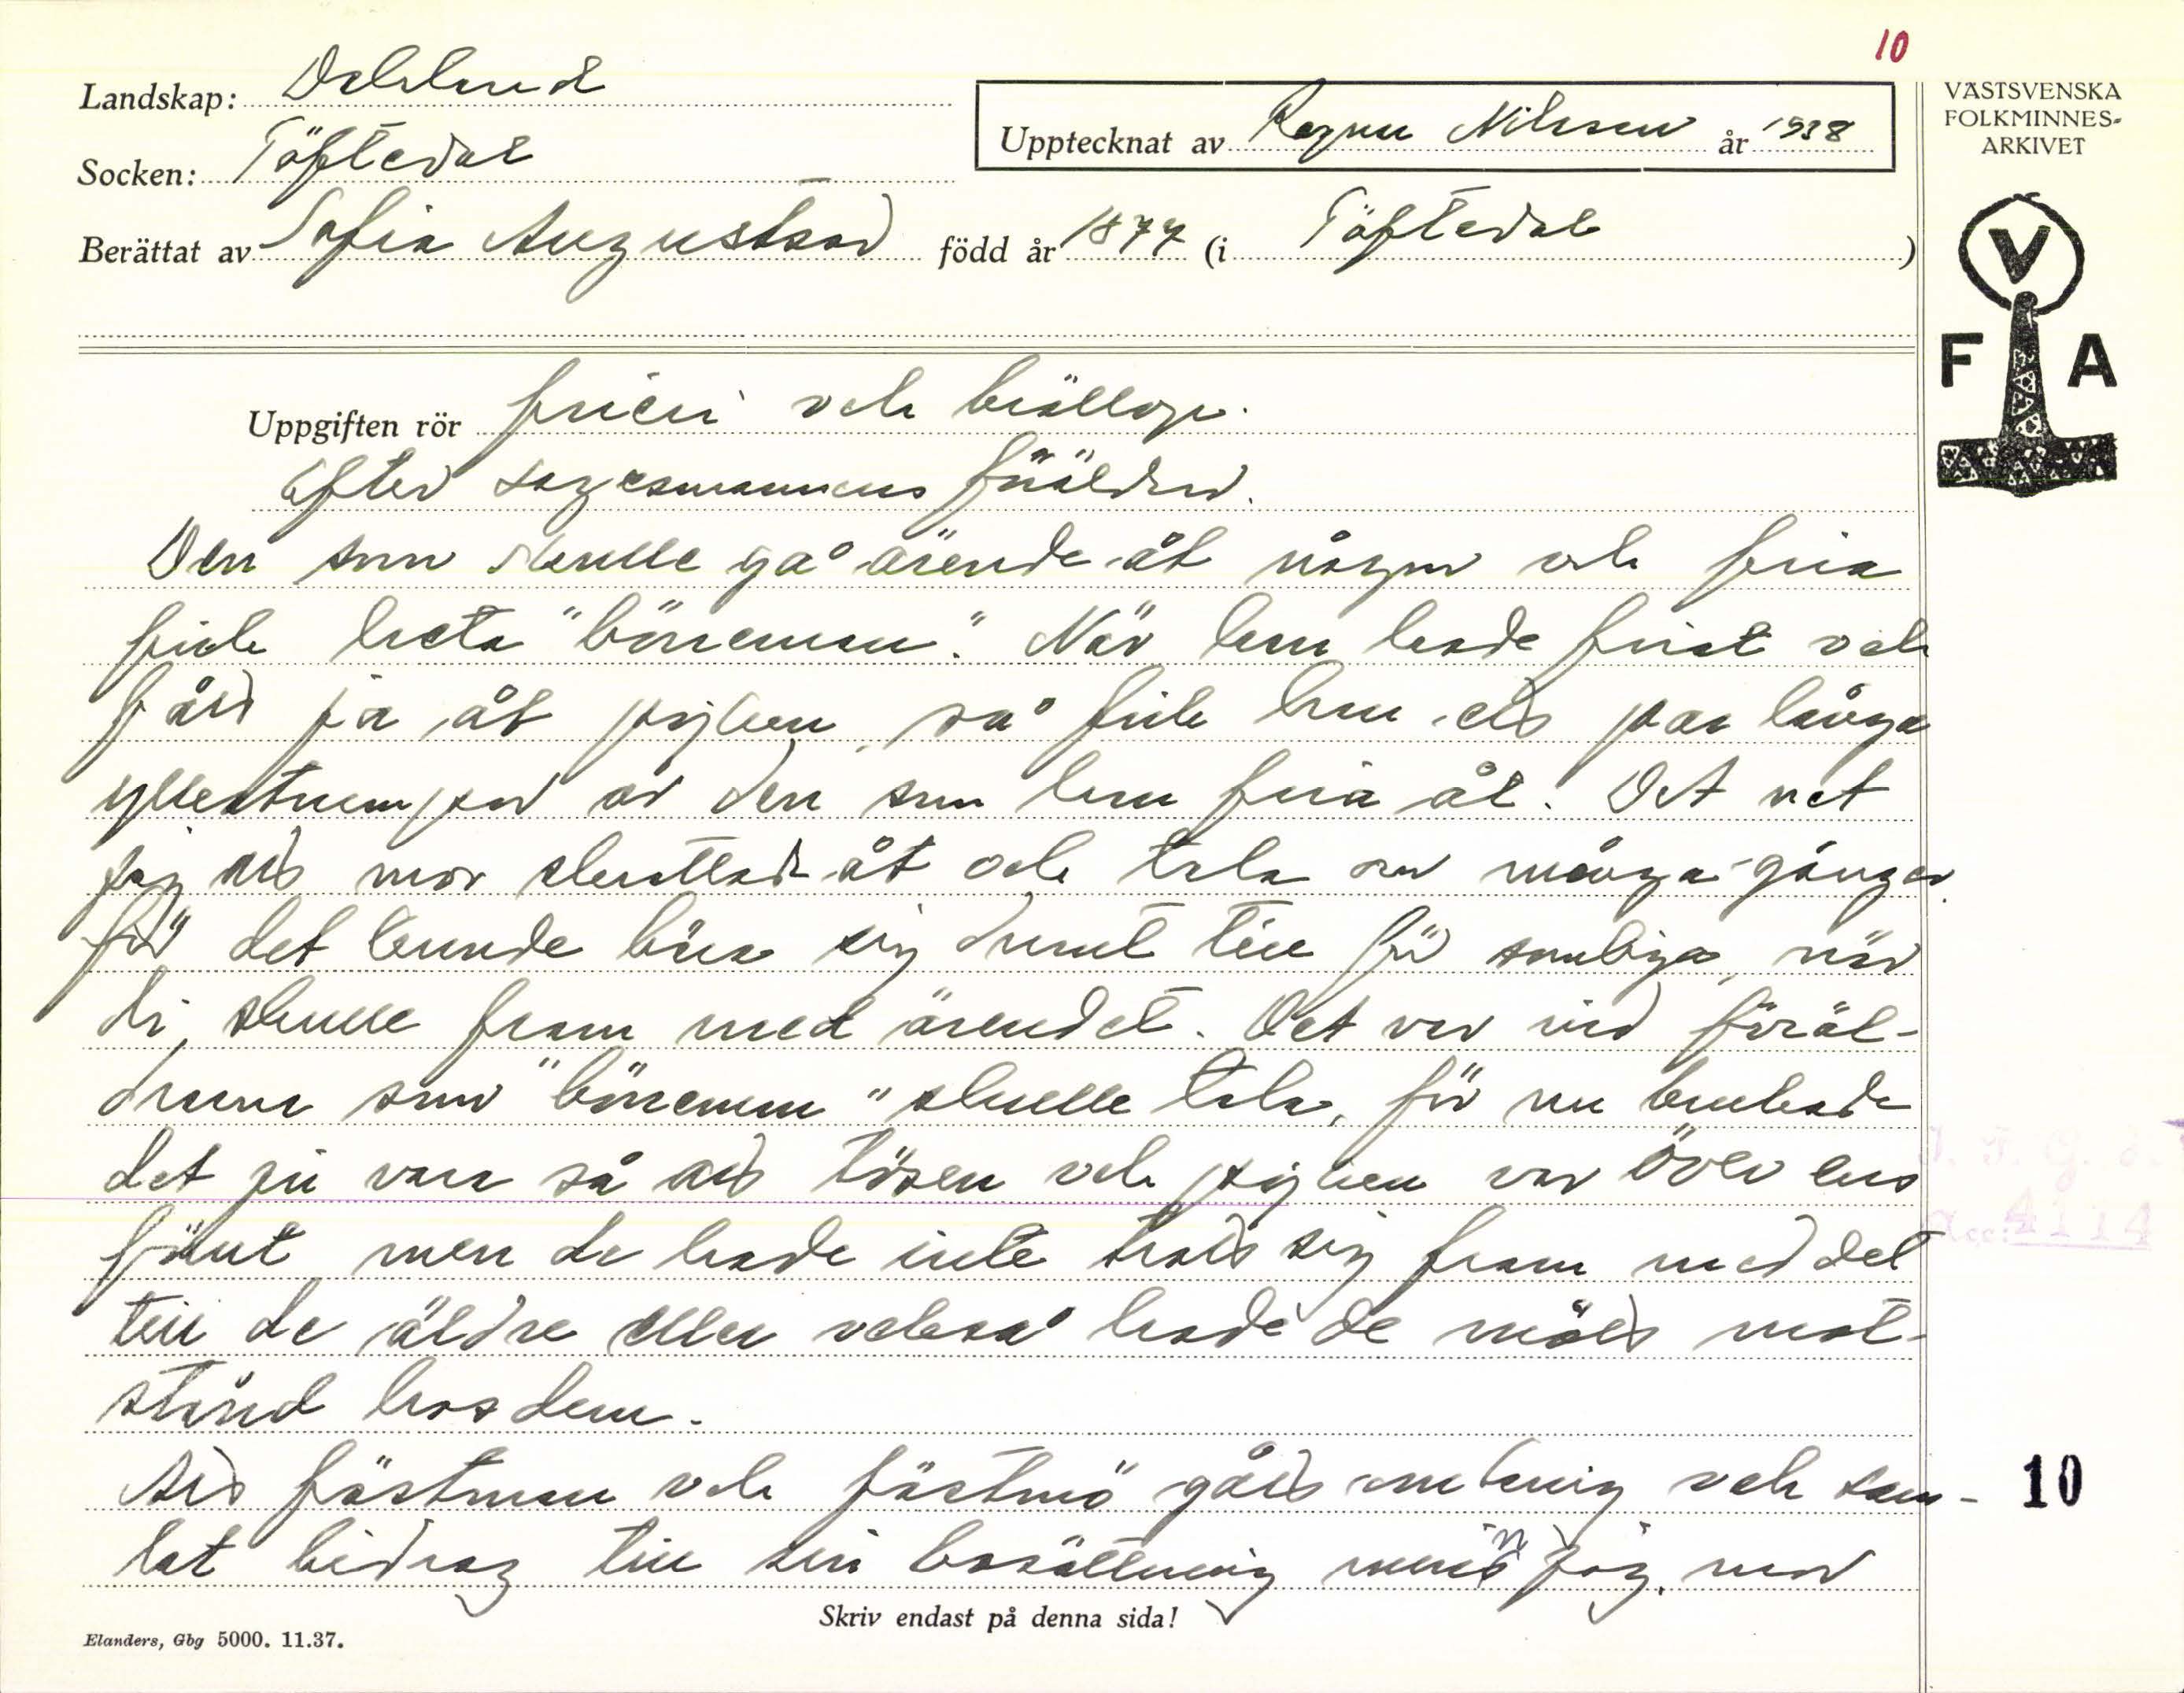 10
Landskap: Dalsland
Socken: Töftedal
Upptecknat av Ragnar Nilsson år 1938
Berättat av Sofia Augustsson född år 1877 (i Töftedal)
VÄSTSVENSKA
FOLKMINNES-
ARKIVET
V
F A
Uppgiften rör frieri och bröllop.
Efter sagesmannens föräldrar.
Den som skulle gå ärende åt någon och fria
fick heta "böneman". När han hade friat och
fått ja åt pojken, så fick han ett par långa
yllestrumpor av den som han fria åt. Det vet
jag att mor skrattade åt och tala om många gånger
för det kunde bära sig dumt till för somliga, när
di skulle fram med ärendet. Det var vid föräl-
drarna som "böneman" skulle tala, för nu brukade
det ju vara så att tösen och pojken var över ens
förut men de hade inte trott sig fram med det
till de äldre eller också hade de mött mot-
stånd hos dem.
Att fästman och fästmö gått omkring och sam-
lat bidrag till sin bosättning minns jag, men
Skriv endast på denna sida!
Elanders, Gbg 5000. 11.37.
4114
10